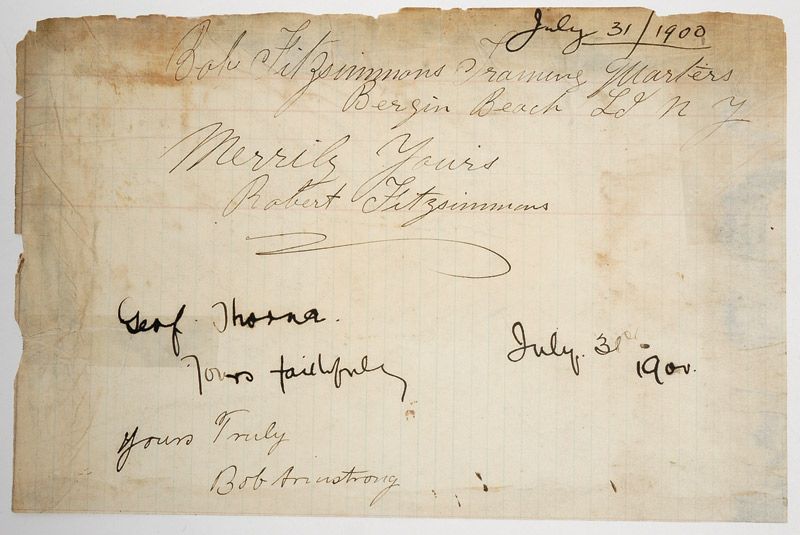 July 31/1900
Bob Fitzsimmons Training Quarters
Bergin Beach LI N Y
Merrily Yours
Robert Fitzsimmons
Geof. Thorne.
Yours faithfully
July. 31st 1900.
Yours Truly
Bob Armstrong